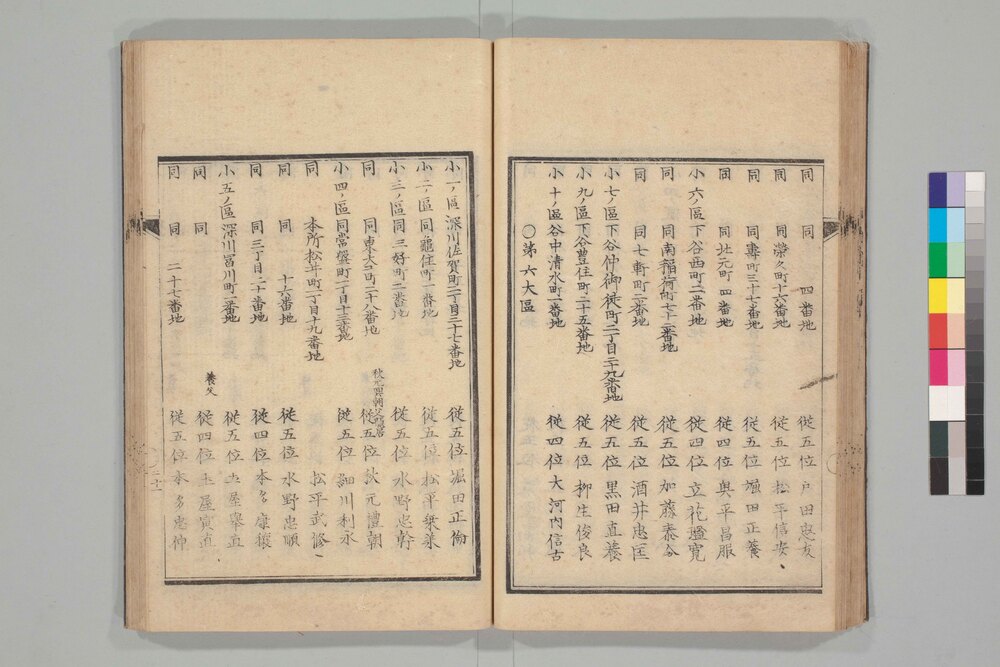 同 同 四番地 従五位 戸田忠友
同 榮久町十六番地 従五位 松平信安
同 同壽町三十七番地 従五位 堀田正養
同 同北元町四番地 従四位 奥平昌服
小六ノ區下谷西町二番地 従四位 立花鑑寛
同 同南稲荷町七十二番地 従五位 加藤泰令
同 同七軒町二番地 従五位 酒井忠匡
小七ノ區下谷仲御徒町二丁目二十九番地 従五位 黒田直養
小九ノ區下谷豊住町二十五番地 従五位 柳生俊良
小十ノ區谷中清水町一番地 従四位 大河内信古
〇第六大區
小一ノ區深川佐賀町二丁目三十七番地 従五位 堀田正倫
小二ノ區同龜住町一番地 従五位 松平乗
小三ノ區同三好町二番地 従五位 水野忠幹
同 同東大工町二十八番地 秋元興朝父隠居 従五位 秋元禮朝
小四ノ區同常盤町一丁目十三番地 従五位 細川利永
同 本所松井町一丁目十九番地 松平武修
同 同 十六番地 従五位 水野忠順
同 同三丁目二十番地 従四位 本多康穰
小五ノ區深川冨川町一番地 従五位 土屋擧直
同 同 養父 従四位 土屋寅直
同 同 二十七番地 従五位 本多忠伸
三十二